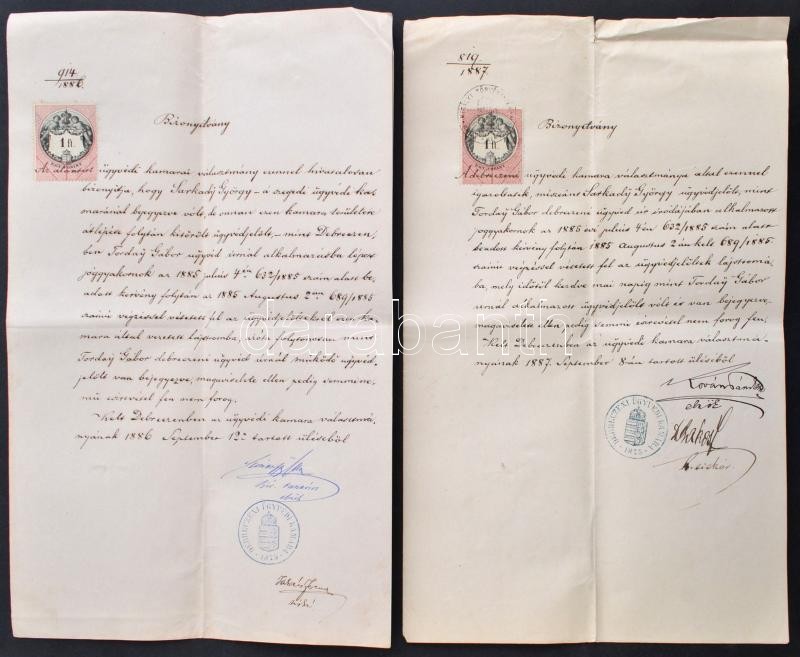 914
1886
1 ft.
Bizonyítvány
Az alulírt ügyvédi kamarai választmány ezennel hivatalosan
bizonyítja, hogy Sarkadÿ György – a szegedi ügyvédi ka-
maránál bejegyezve volt, s onnan ezen kamara területére
átlépése folytán kitörölt ügyvédjelölt, – mint Debreczen-
ben Tordaÿ Gábor ügyvéd úrnál alkalmazásba lépett
joggyakornok az 1885 július 4én 632/1885 szám alatt be-
adott kérvény folytán az 1885 Augusztus 2án 689/1885
számú végzéssel vétetett fel az ügyvédjelölteknek ezen ka-
mara által vezetett lajstromba, azóta folytonosan mint
Tordaÿ Gábor debreczeni ügyvéd úrnál működő ügyvéd-
jelölt van bejegyezve, magaviselete ellen pedig semmine-
mű észrevétel fen nem forog.
Kelt Debreczenben az ügyvédi kamara választmá-
nyának 1886 September 12én tartott üléséből
elnök
DEBRECZENI ÜGYVÉDI KAMARA 1875
titkár
819
1887
1 ft.
Bizonyítvány
A debreczeni ügyvédi kamara választmánya által ezennel
igazoltatik, miszerint Sarkadÿ György ügyvédjelölt, mint
Tordaÿ Gábor debreczeni ügyvéd úr irodájában alkalmazott
joggyakornok az 1885 évi július 4én 632/1885 szám alatt
beadott kérvény folytán 1885 Augustus 2án kelt 689/1885
számú végzéssel vétetett fel az ügyvédjelöltek lajstromá-
ba, mely időtől kezdve mai napig mint Tordaÿ Gábor
úrnál alkalmazott ügyvédjelölt volt és van bejegyezve
magaviselete ellen pedig semmi észrevétel nem forog fen.
Kelt Debreczenben az ügyvédi kamara választmá-
nyának 1887. September 8án tartott üléséből
elnök
DEBRECZENI ÜGYVÉDI KAMARA 1875
titkár
darabanth